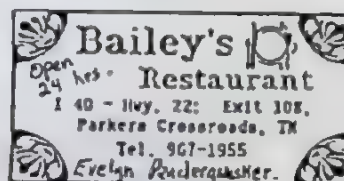 Bailey's
Open
24 hrs.
Restaurant
I 40 - Hwy. 22: Exit 108,
Parkers Crossroads, TN
Tel. 967-1955
Evelyn